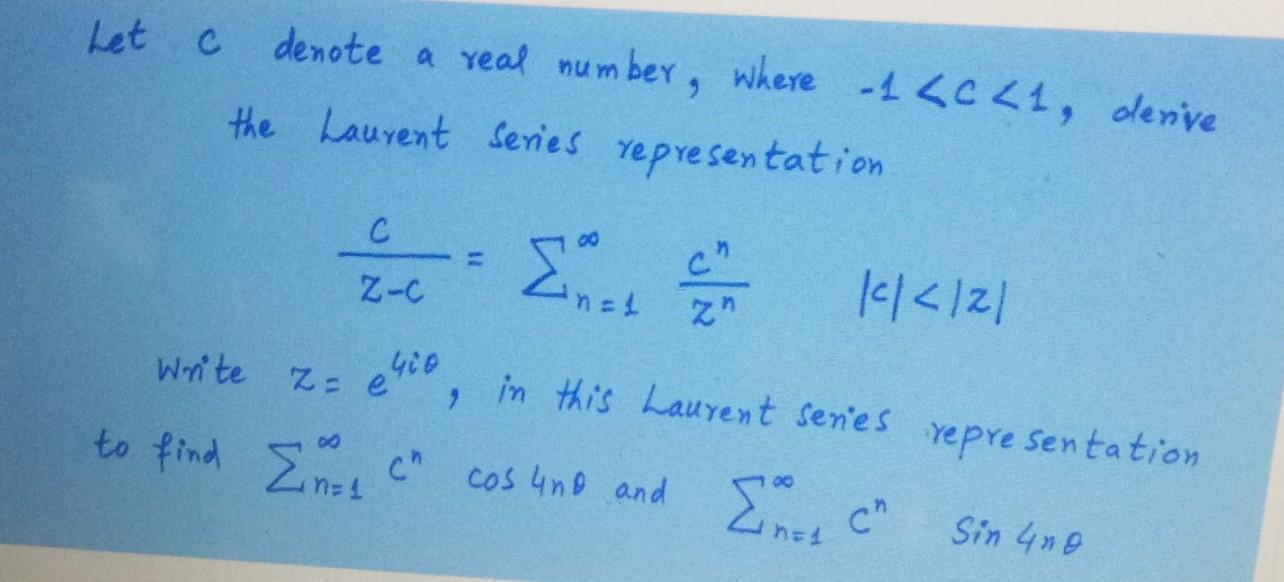 Let c denote a real number, where -1 < c < 1, derive
the Laurent series representation
c/(z-c) = ∑_{n=1}^{∞} c^n/z^n |c| < |z|
Write z = e^{4iθ}, in this Laurent series representation
to find ∑_{n=1}^{∞} c^n cos 4nθ and ∑_{n=1}^{∞} c^n Sin 4nθ